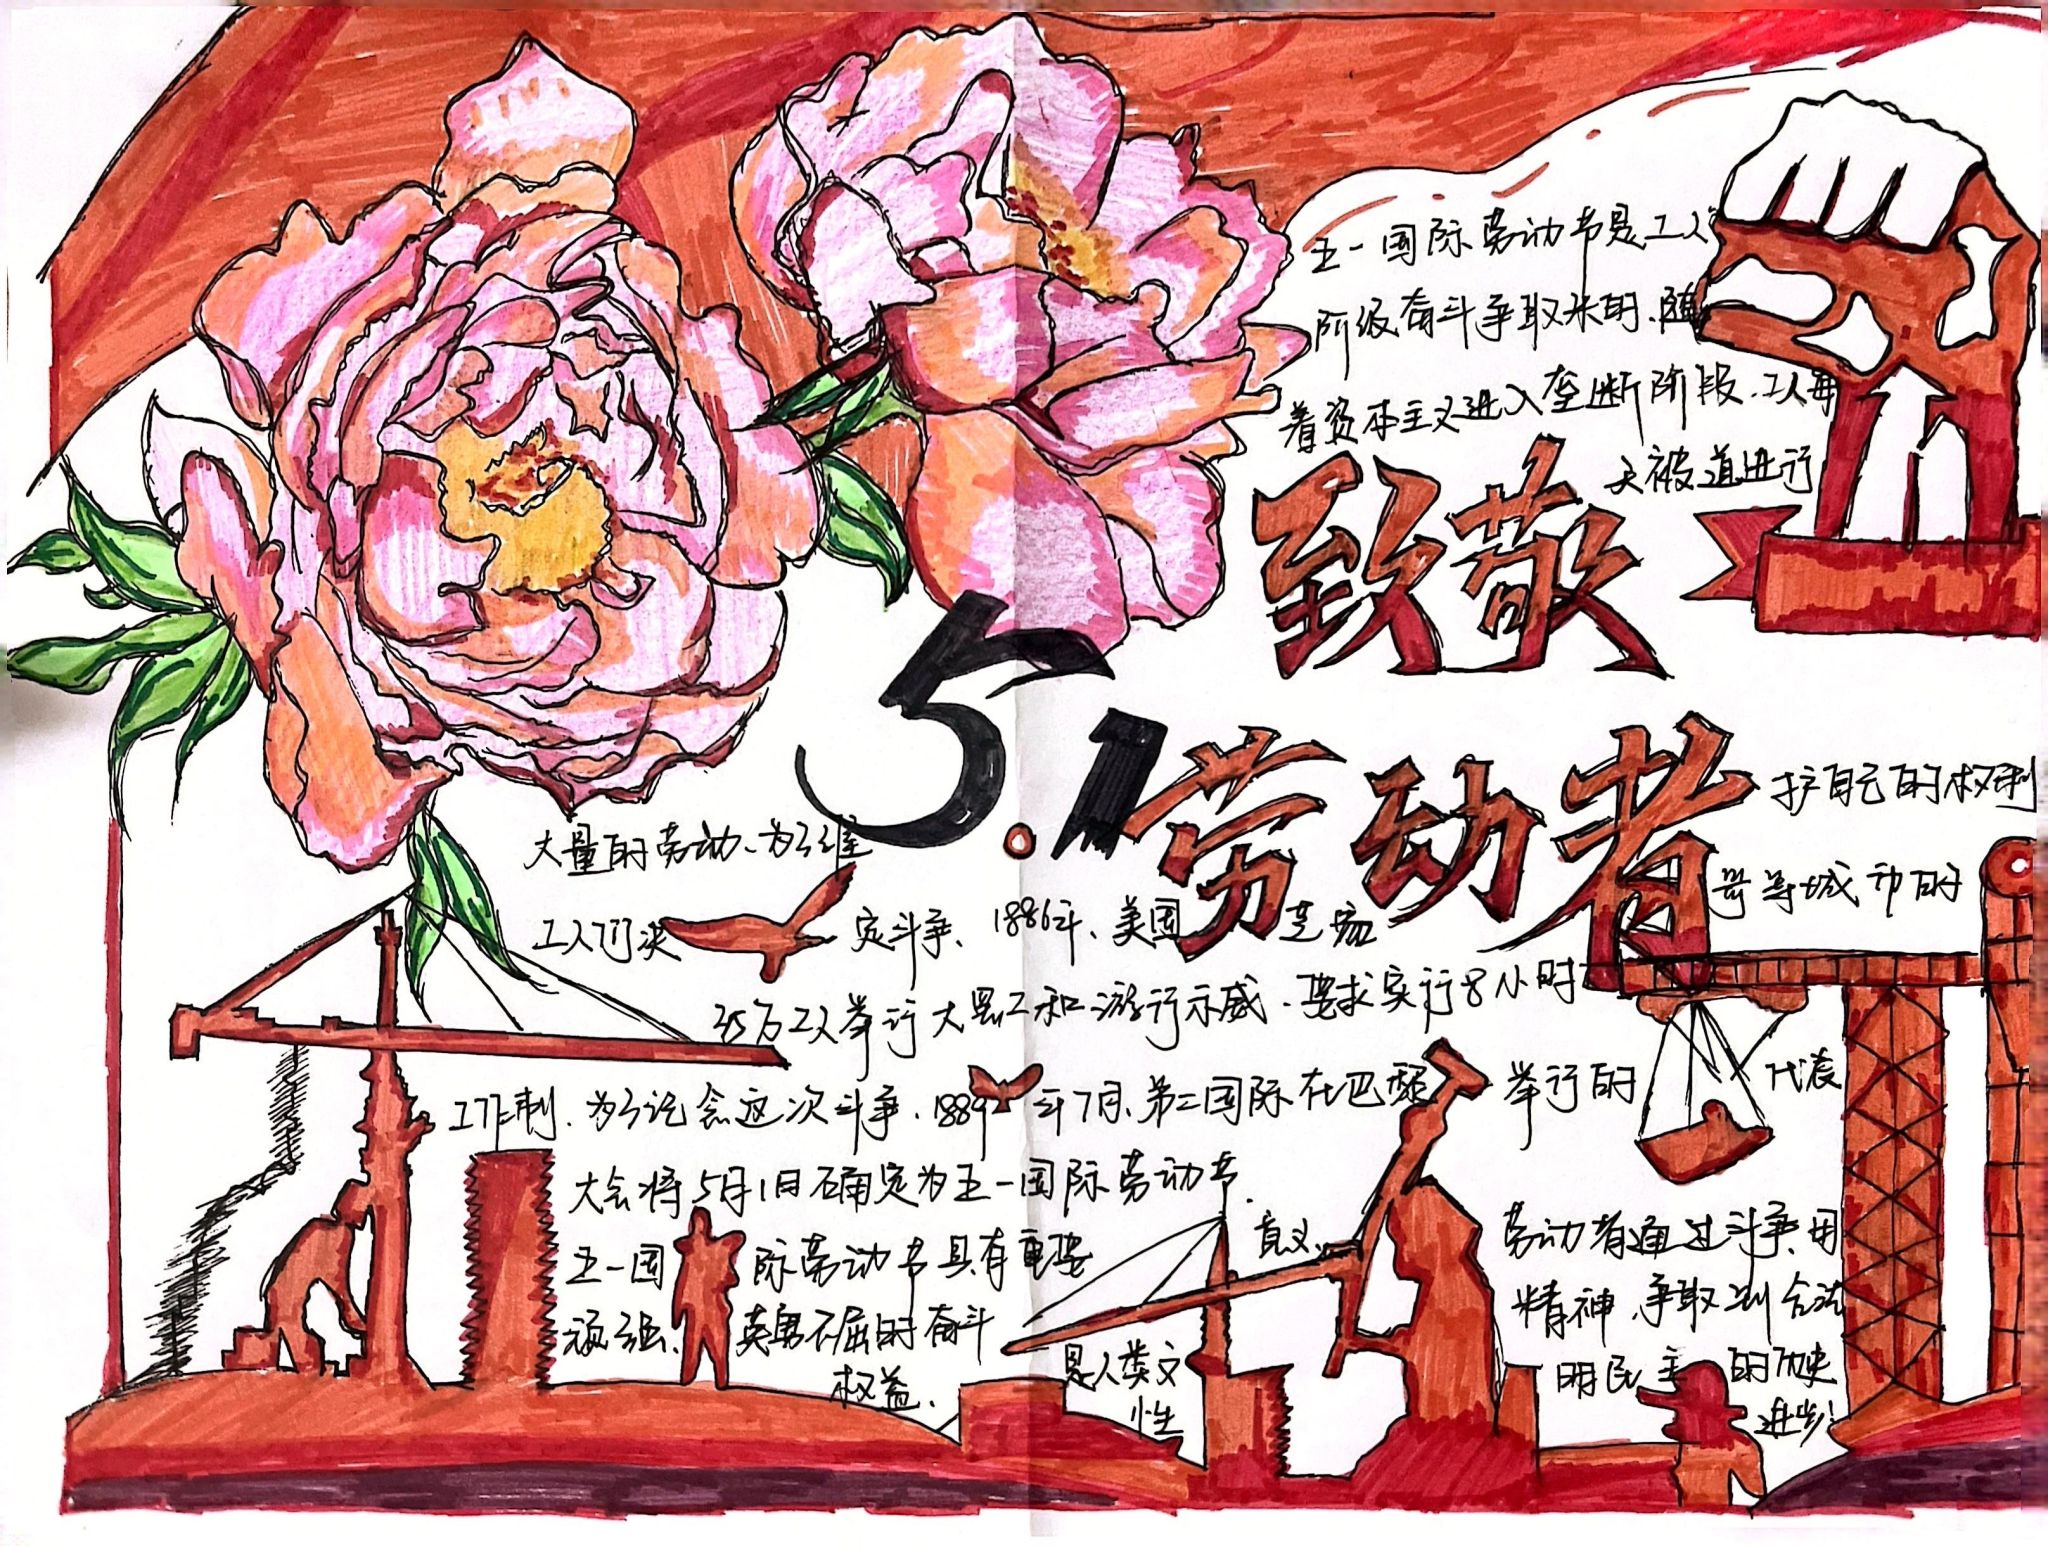 五一国际劳动节是工人
阶级奋斗争取来的、随
着资本主义进入垄断阶段、工人每
天被迫进行
致敬
5.1劳动者
大量的劳动、为了维
护自己的权利
工人们决定斗争、1886年、美国芝加
哥等城市的
35万工人举行大罢工和游行示威、要求实行8小时
工作制、为了纪念这次斗争、1889年7月、第二国际在巴黎举行的
代表
大会将5月1日确定为五一国际劳动节.
五一国际劳动节具有重要
意义、
劳动者通过斗争、用
顽强、英勇不屈的奋斗
精神、争取到合法
权益.
是人类文
明民主的历史
性
进步